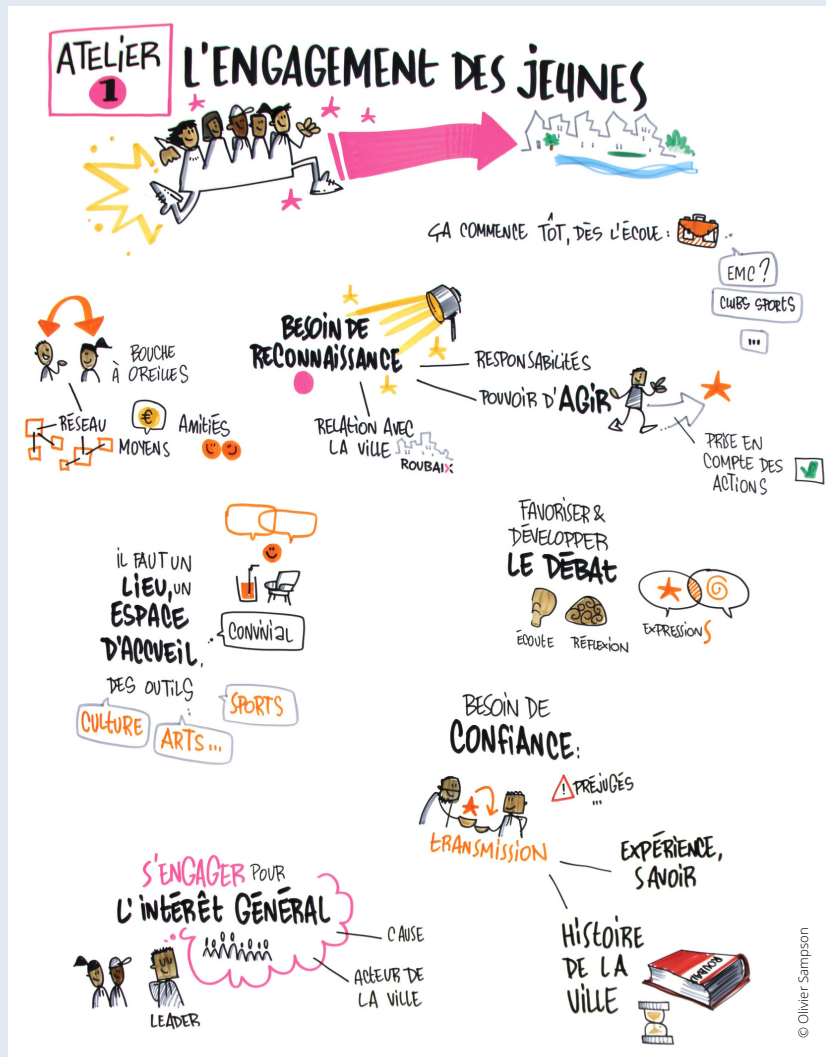 ATELIER
1
L'ENGAGEMENT DES JEUNES
ÇA COMMENCE TÔT, DÈS L'ÉCOLE :
EMC ?
CLUBS SPORTS
...
BOUCHE
À OREILLES
RÉSEAU
€
MOYENS
AMITIÉS
BESOIN DE
RECONNAISSANCE
RESPONSABILITÉS
POUVOIR D'AGIR
RELATION AVEC
LA VILLE
ROUBAIX
PRISE EN
COMPTE DES
ACTIONS
IL FAUT UN
LIEU, UN
ESPACE
D'ACCUEIL,
CONVIVIAL
DES OUTILS
CULTURE
ARTS...
SPORTS
FAVORISER &
DÉVELOPPER
LE DÉBAT
ÉCOUTE
RÉFLEXION
EXPRESSIONS
BESOIN DE
CONFIANCE :
! PRÉJUGÉS
...
TRANSMISSION
EXPÉRIENCE,
SAVOIR
HISTOIRE
DE LA
VILLE
ROUBAIX
S'ENGAGER POUR
L'INTÉRÊT GÉNÉRAL
CAUSE
ACTEUR DE
LA VILLE
LEADER
© Olivier Sampson